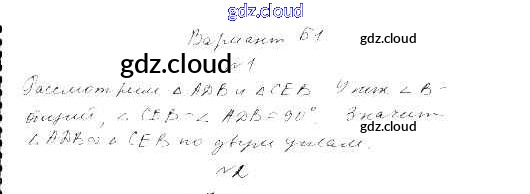 gdz.cloud
Вариант Б1
gdz.cloud
gdz.cloud
№1
Рассмотрим △ ADB и △ CEB У них ∠ B -
общий, ∠ CEB = ∠ ADB = 90°. Значит
gdz.cloud
∠ ADB ∞ △ CEB по двум углам.
№2